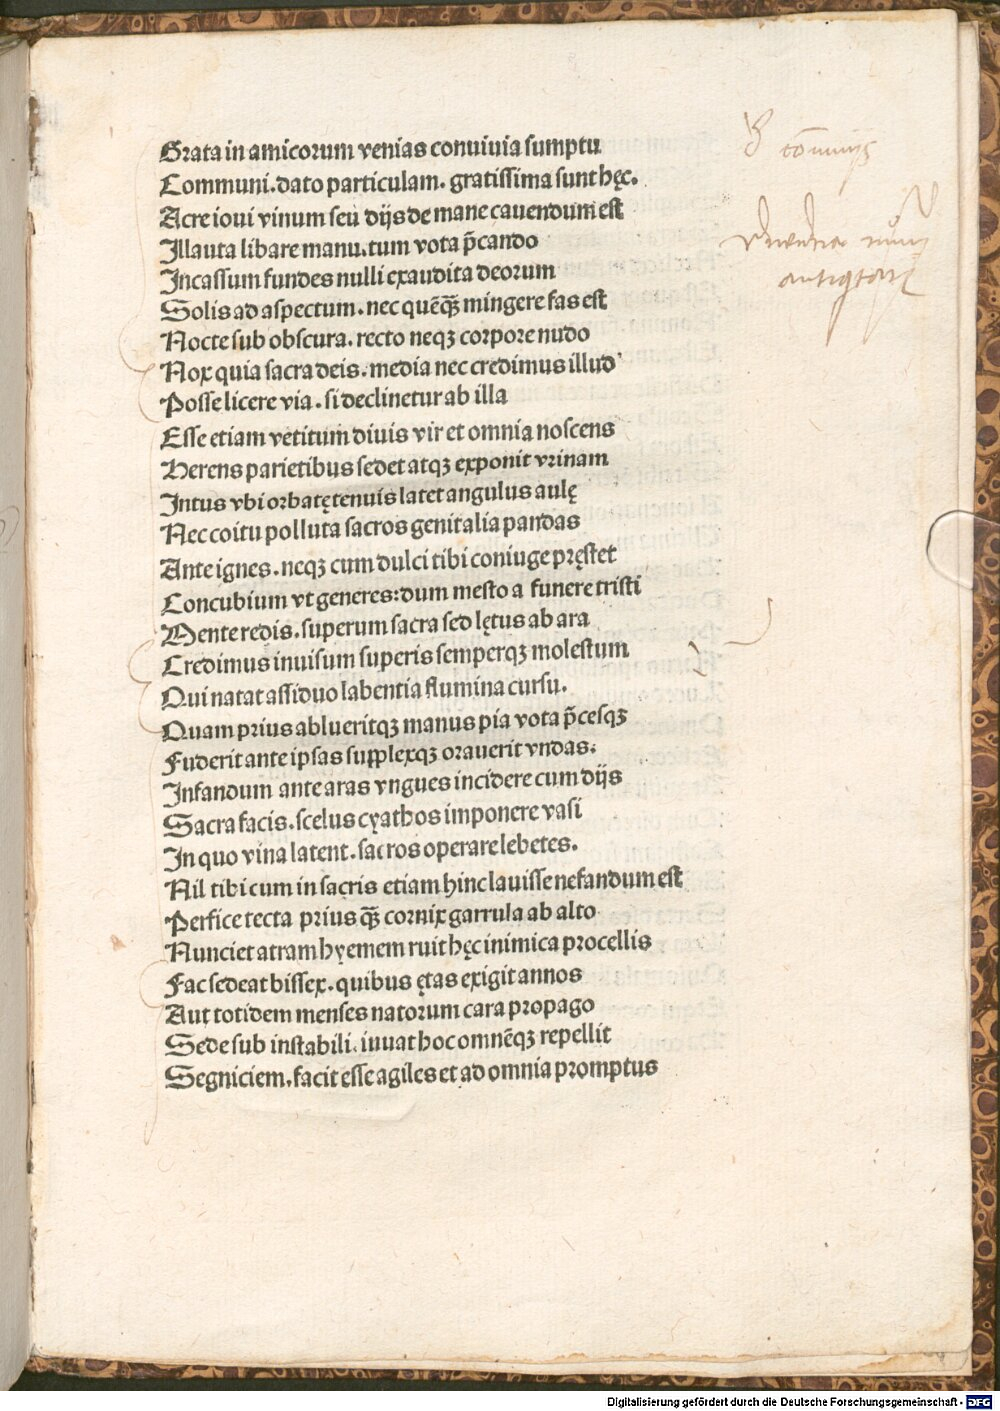 Grata in amicorum venias conuiuia sumptu
Communi.dato particulam. gratissima sunt hęc.
Acre ioui vinum seu dijs de mane cauendum est
Illauta libare manu.tum vota p̄cando
Incassum fundes nulli exaudita deorum
Solis ad aspectum. nec quēq̄ꝫ mingere fas est
Nocte sub obscura. recto neqꝫ corpore nudo
Nox quia sacra deis. media nec credimus illud
Posse licere via. si declinetur ab illa
Esse etiam vetitum diuis vir et omnia noscens
Herens parietibus sedet atqꝫ exponit vrinam
Intus vbi orbatę tenuis latet angulus aulę
Nec coitu polluta sacros genitalia pandas
Ante ignes. neqꝫ cum dulci tibi coniuge pręstet
Concubium vt generes: dum mesto a funere tristi
Mente redis. superum sacra sed lętus ab ara
Credimus inuisum superis semperqꝫ molestum
Qui natat assiduo labentia flumina cursu.
Quam prius ablueritqꝫ manus pia vota p̄cesqꝫ
Fuderit ante ipsas supplexqꝫ orauerit vndas:
Infandum ante aras vngues incidere cum dijs
Sacra facis. scelus cyathos imponere vasi
In quo vina latent. sacros operare lebetes.
Nil tibi cum in sacris etiam hinc lauisse nefandum est
Perfice tecta prius q̄ꝫ cornix garrula ab alto
Nunciet atram hyemem ruit hęc inimica procellis
Fac sedeat bissex. quibus ętas exigit annos
Aut totidem menses natorum cara propago
Sede sub instabili. iuuat hoc omnēqꝫ repellit
Segniciem. facit esse agiles et ad omnia promptus
Digitalisierung gefördert durch die Deutsche Forschungsgemeinschaft - DFG